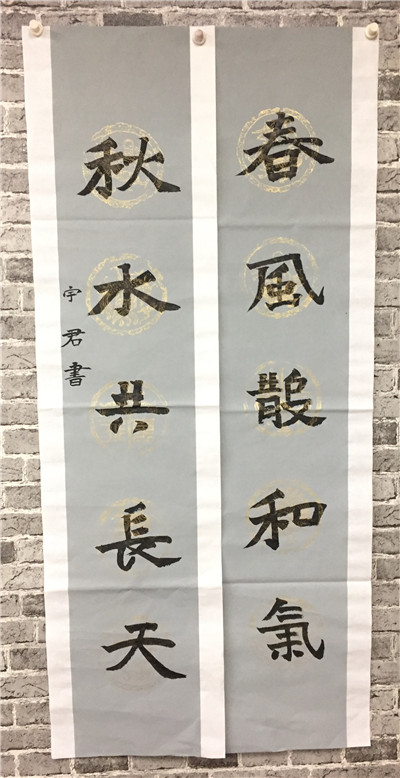 春風散和氣
秋水共長天
宇君書